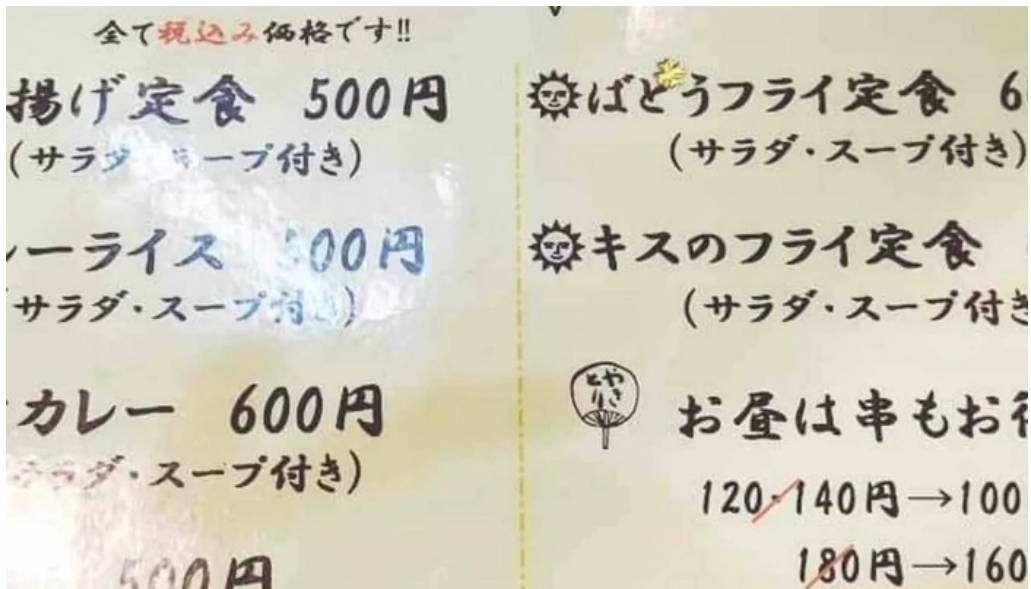 全て税込み価格です!!
揚げ定食 500円
(サラダ・スープ付き)
ーライス 500円
サラダ・スープ付き)
カレー 600円
サラダ・スープ付き)
500円
ばとうフライ定食 6
(サラダ・スープ付き)
キスのフライ定食
(サラダ・スープ付き
やきとり
お昼は串もお
120・140円→100
180円→160